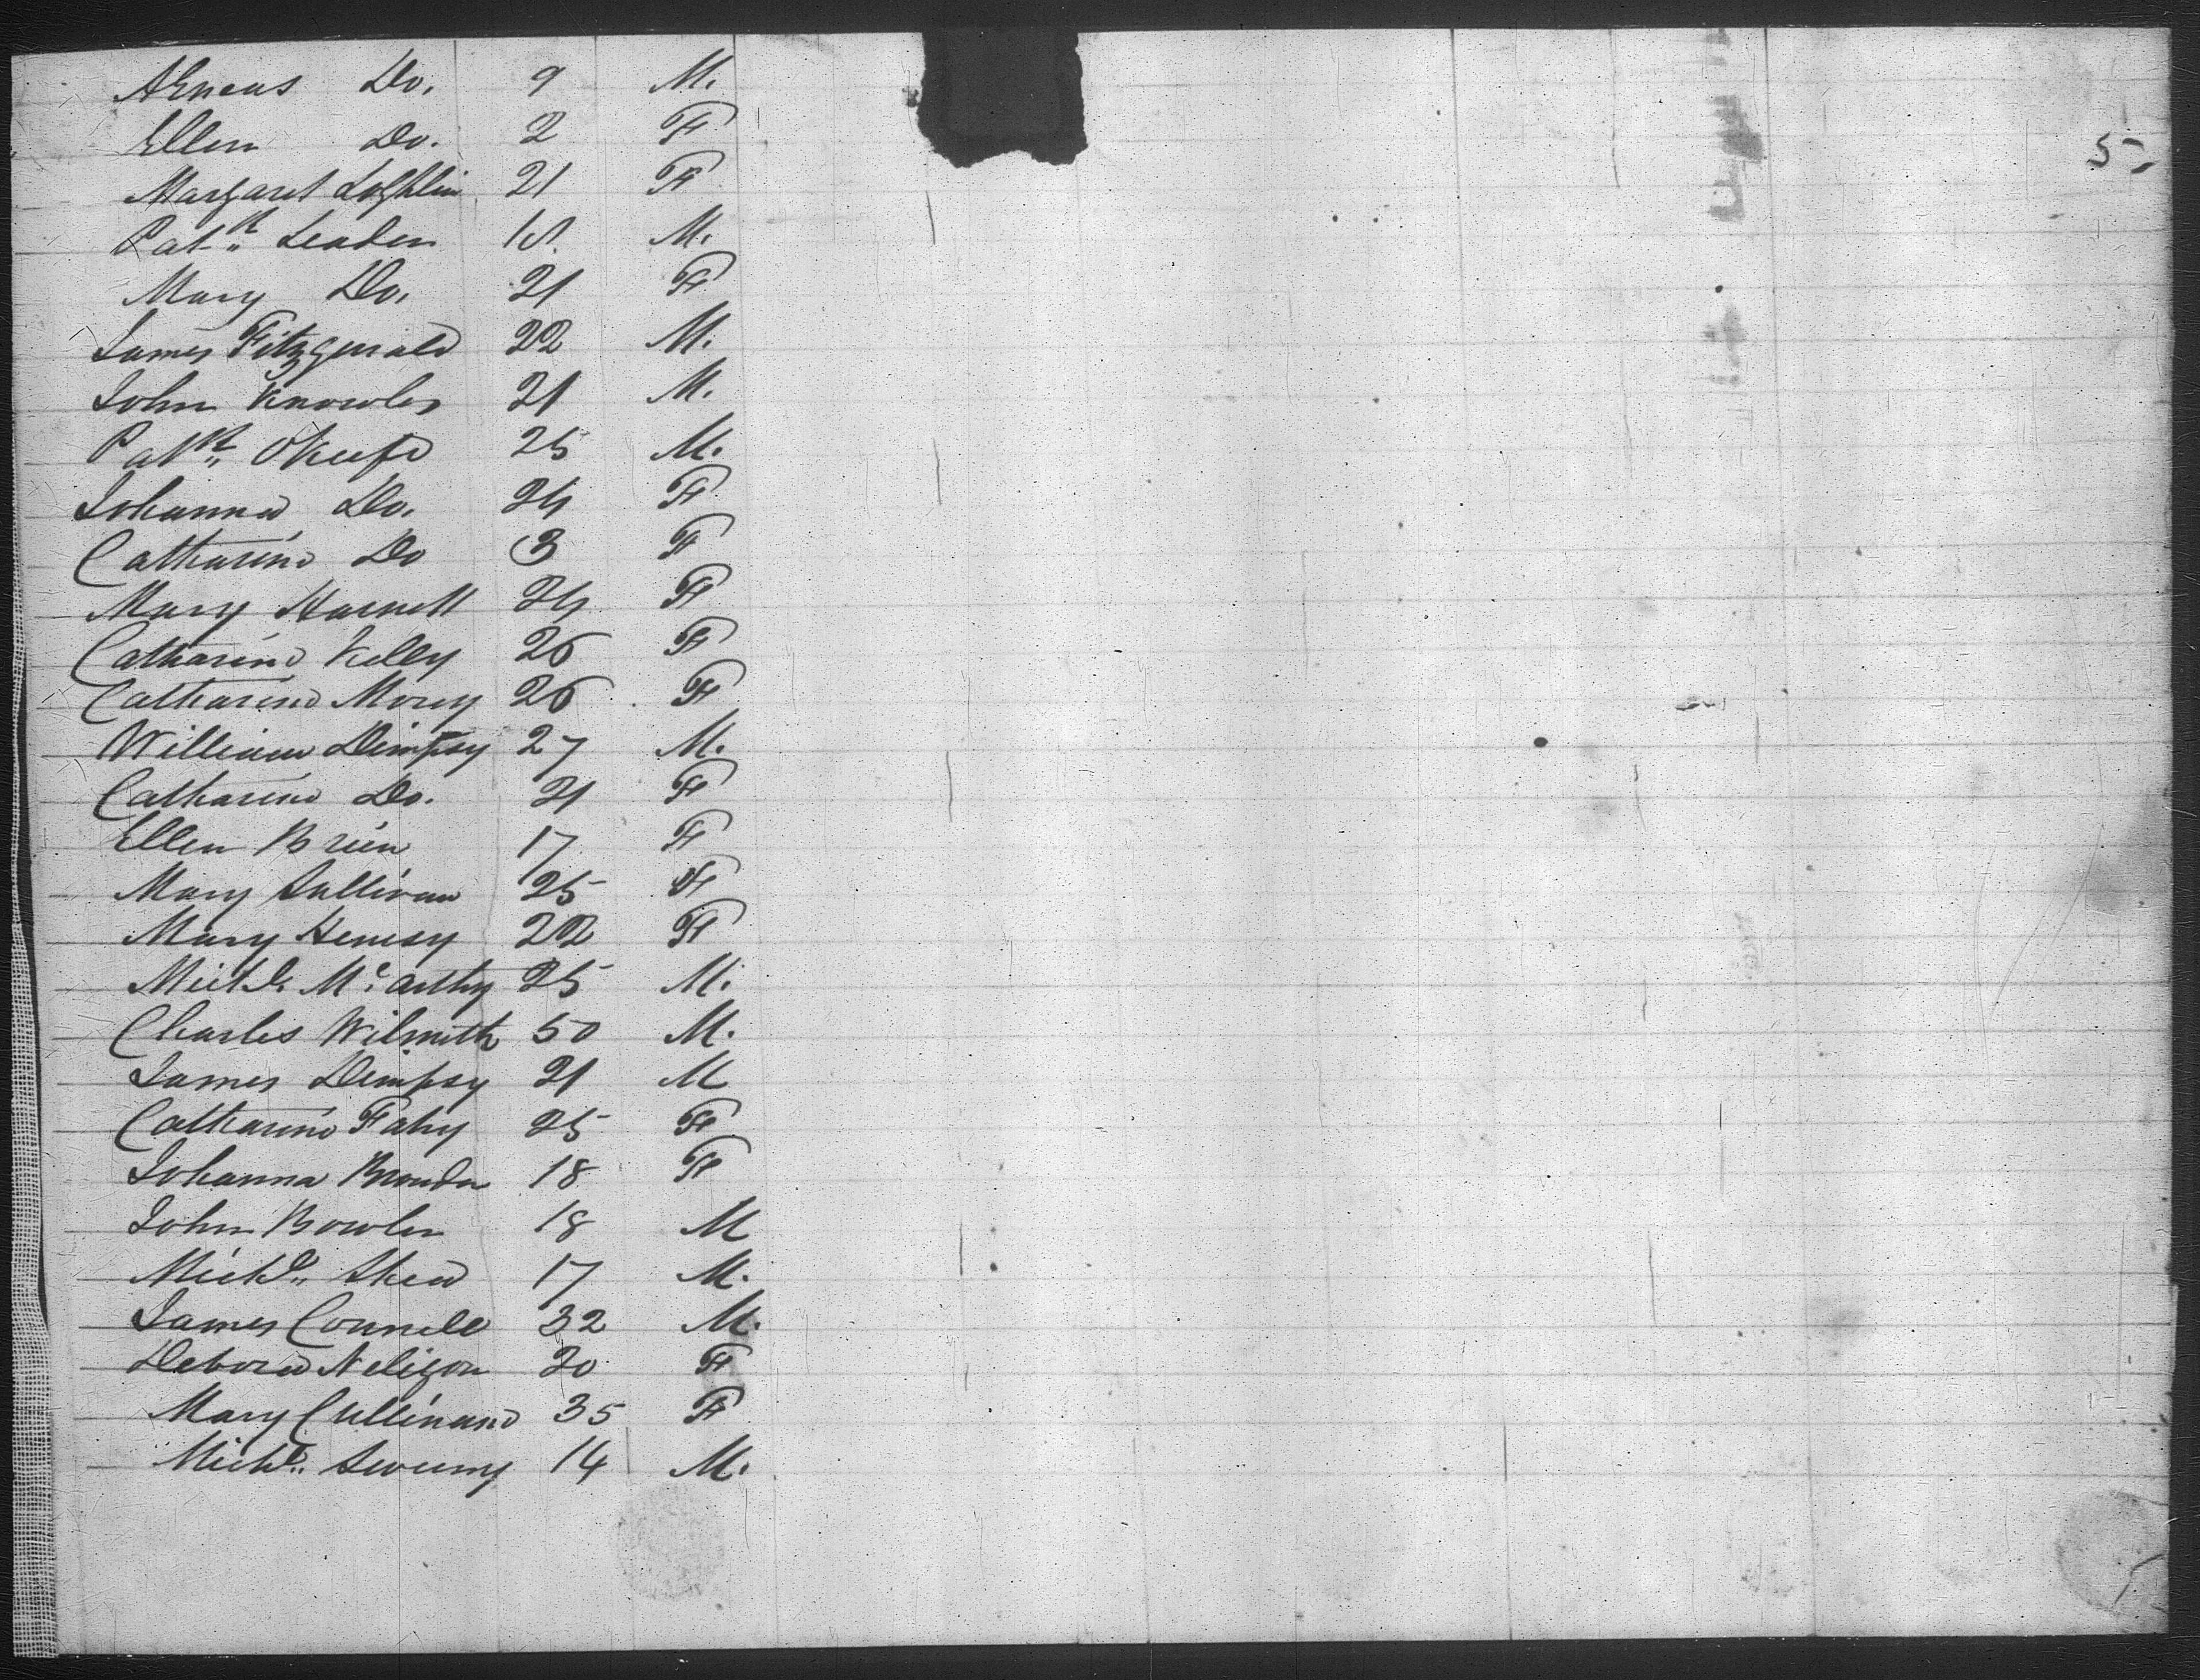 Aeneas Do. 9 M.
Ellen Do. 2 F
Margaret Loghlin 21 F
Patk. Leaden 18. M.
Mary Do. 21 F
James Fitzgerald 22 M.
John Knowles 21 M.
Patk. OKeefe 25 M.
Johanna Do. 24 F
Catharine Do 3 F
Mary Harnett 24 F
Catharine Kelly 26 F
Catharine Morey 26 F
William Dimpsy 27 M.
Catharine Do. 21 F
Ellen Brien 17 F
Mary Sullivan 25 F
Mary Henesy 22 F
Michl. Mc.arthy 25 M.
Charles Wilmuth 50 M.
James Dimpsy 21 M
Catharine Fahy 25 F
Johanna 18 F
John Bowler 18 M
Michl. Shea 17 M.
James Connell 32 M.
Debora Neligon 20 F
Mary Cullinane 35 F
Michl. Sweeny 14 M.
5